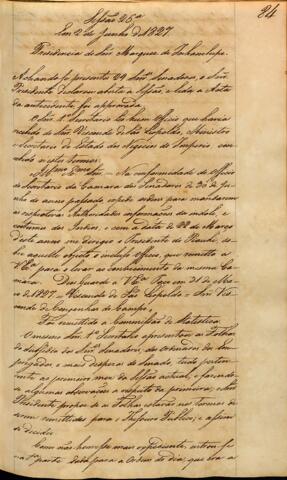 84
Sessão 25ª
Em 2 de Junho de 1827.
Presidencia do Senr. Marquez de Inhambupe.
Achando-se presentes 29 Senrs. Senadores, o Senr.
Presidente declarou aberta a Sessão, e lida a Acta
da antecedente, foi approvada.
O Senr. 1º Secretario leo hum Officio que havia
recebido do Senr. Visconde de São Leopoldo, Ministro
e Secretario de Estado dos Negocios do Imperio con-
cebido nestes termos:
Illmo. Exmo. Senr. = Na conformidade do Officio
do Secretario da Camara dos Senadores de 30 de Ju-
nho do anno passado expedi ordem para mandarem
as respectivas Authoridades informações da indole, e
costumes dos Indios, e com a data de 22 de Março
deste anno me dirigio o Presidente do Piauhi, so-
bre aquelle objecto o incluso officio, que remetto a
VExª para o levar ao conhecimento da mesma Ca-
mara. Deus Guarde a VExª Paço em 31 de Ma-
io de 1827 = Visconde de São Leopoldo = Snr. Vis-
conde de Congonhas do Campo.
Foi remettido a Commissão de Estatistica.
O mesmo Senr. 1º Secretario apresentou as Folhas
do subsidio dos Senrs. Senadores, dos Ordenados dos Em-
pregados e mais despezas do Senado, tudo perten-
cente ao primeiro mez da Sessão actual, e fazendo
algumas observações a respeito da primeira, o Senr.
Presidente propoz se as Folhas estavão nos termos de
serem remettidas para o Thesouro Publico, e assim
se decidio.
Como não houvesse mais expediente, entrou-se
na 1ª parte dada para a Ordem do dia, que era a